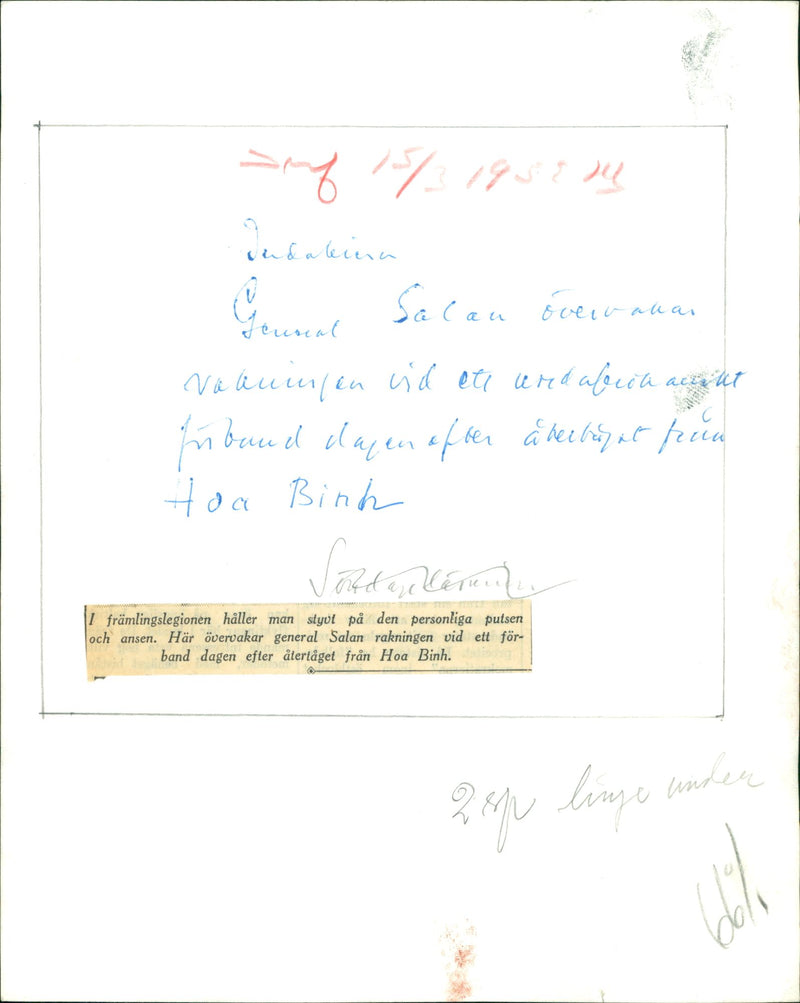 15/3 1952
Indokina
General Salan övervakar
vid ett
förband dagen efter återtåget från
Hoa Binh
I främlingslegionen håller man styvt på den personliga putsen
och ansen. Här övervakar general Salan rakningen vid ett för-
band dagen efter återtåget från Hoa Binh.
2 sp linje under
66%